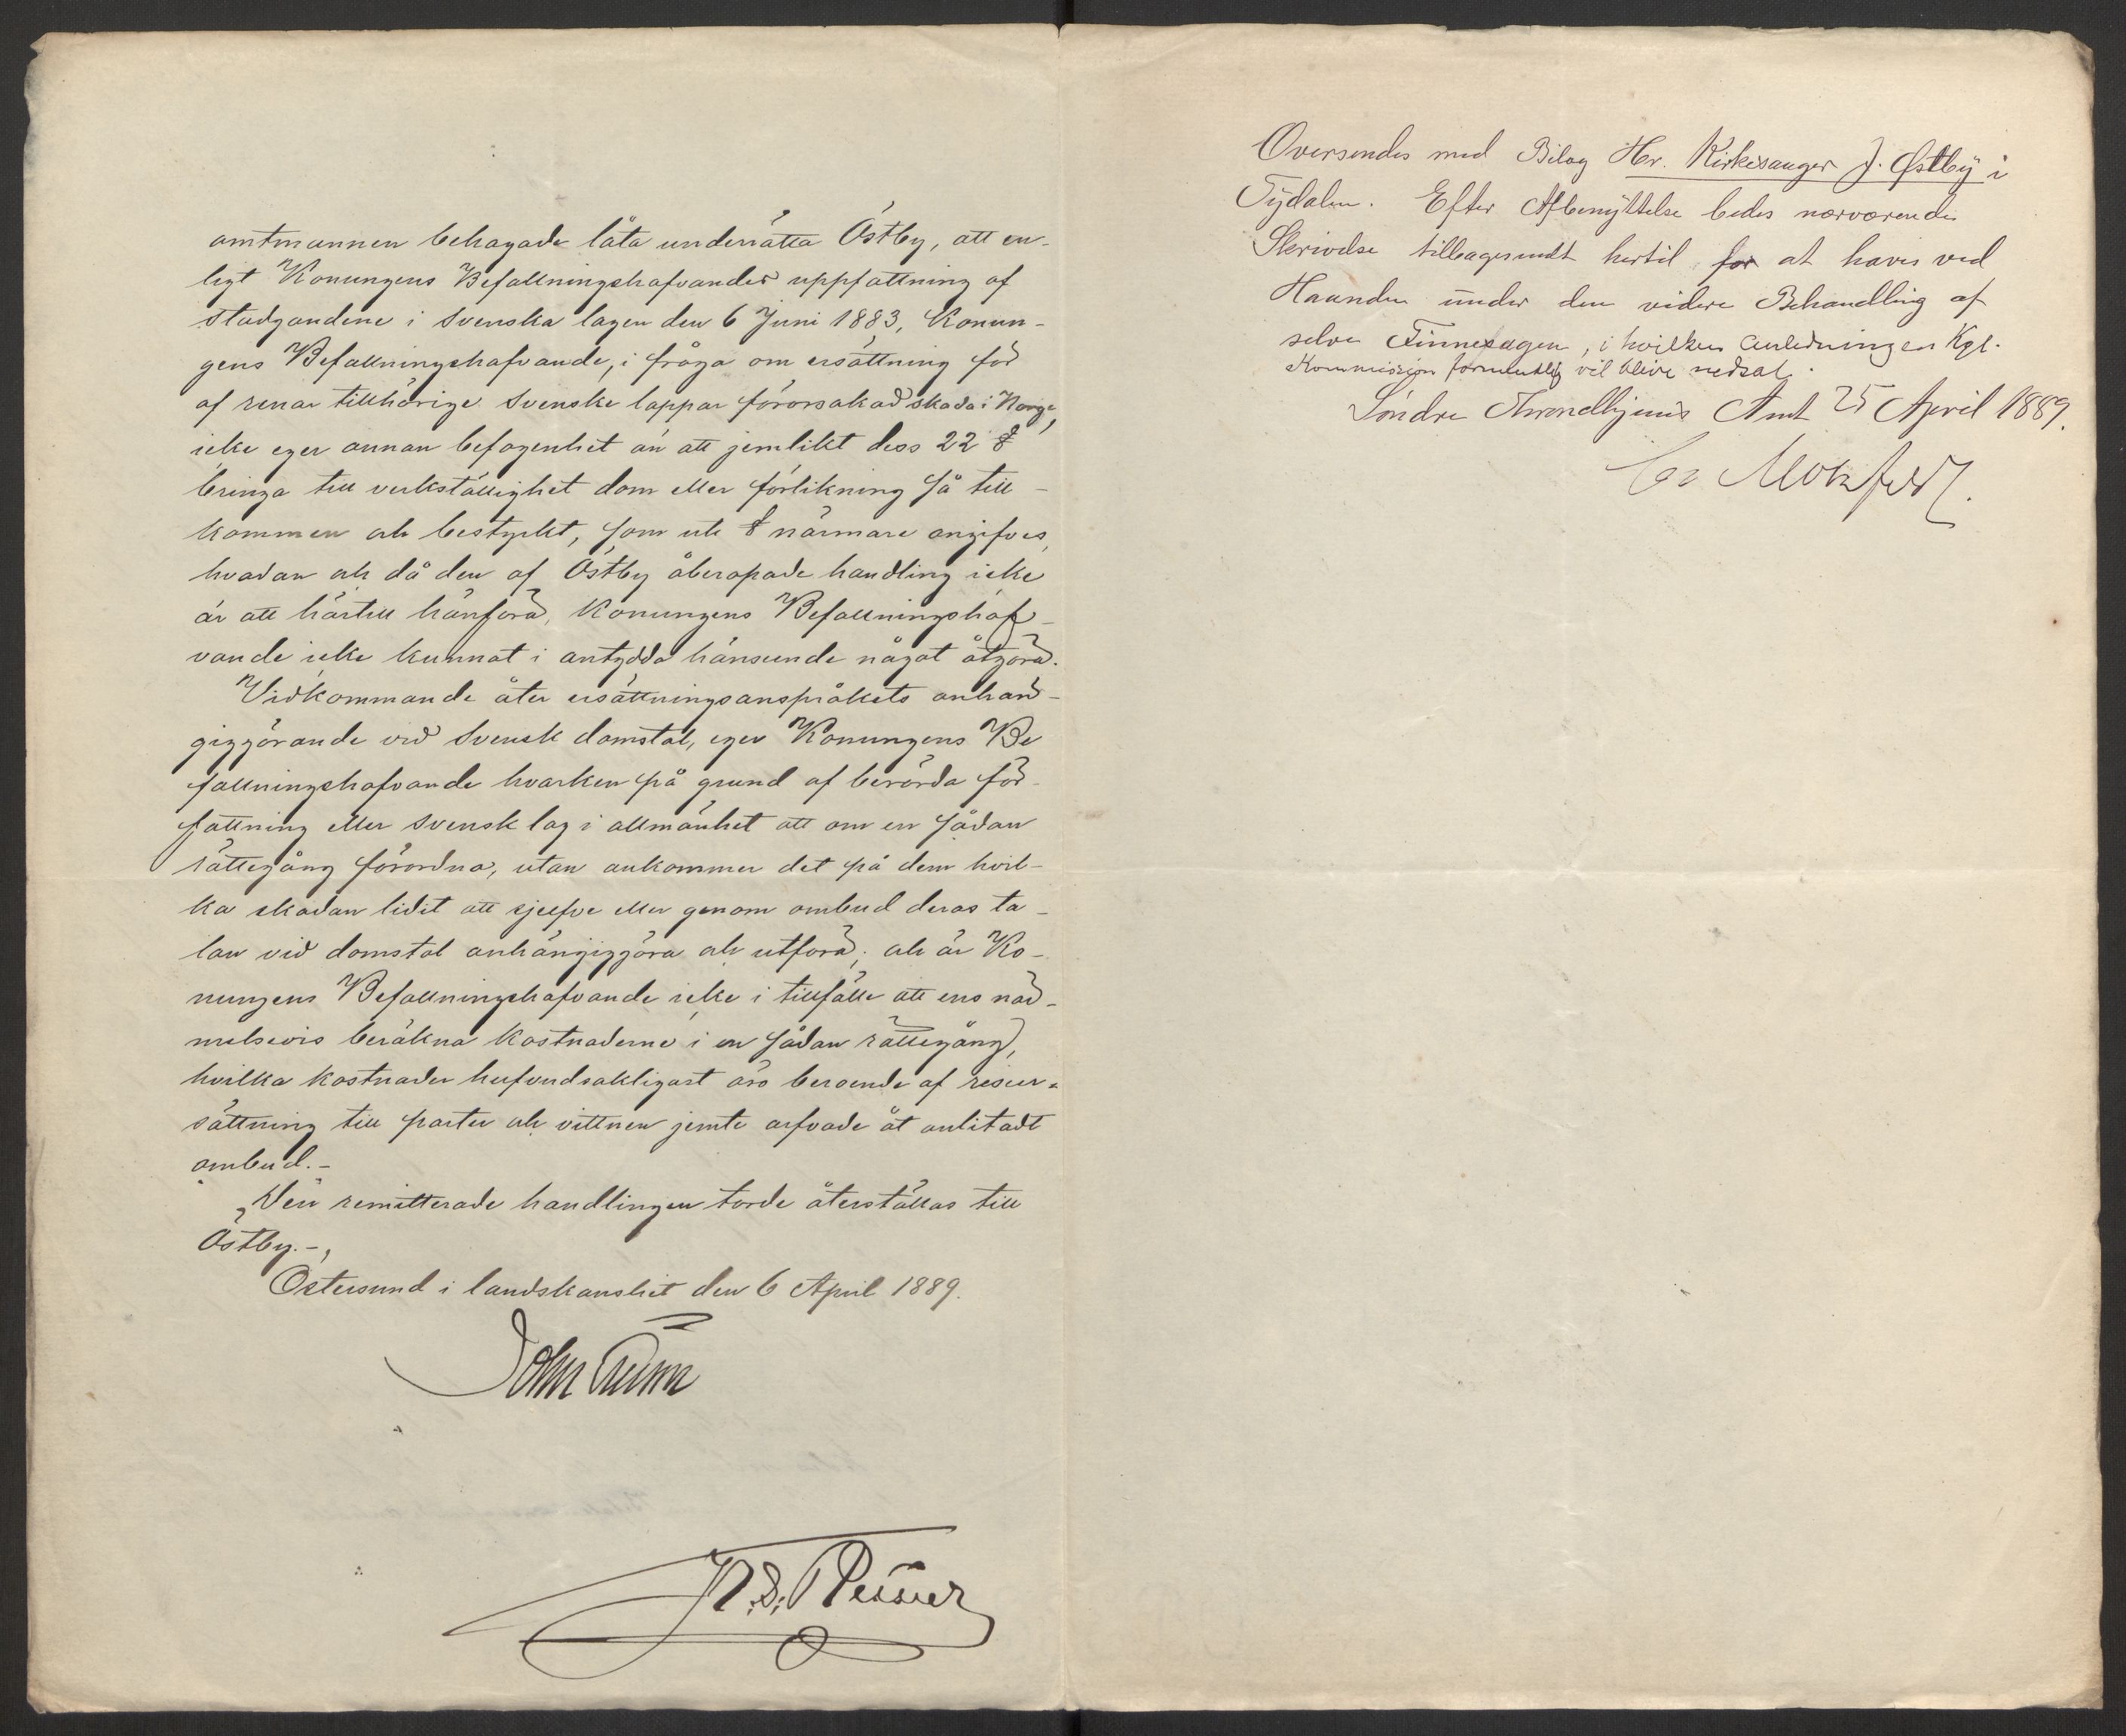 amtmannen behagade låta underrätta Östby, att en-
ligt Konungens Befallningshafvandes uppfattning af
stadgandene i Svenska lagen den 6 Juni 1883, Konun-
gens Befallningshafvande, i fråga om ersättning för
af renar tillhörige Svenske lappar förorsakad skada i Norge,
icke eger annan befogenhet än att jemlikt dess 22 §
bringa till verkställighet dom eller förlikning så till-
kommen och bestyrkt, som uti § närmare angifves,
hvadan och då den af Östby åberopade handling icke
är att härtill hänföra, Konungens Befallningshaf-
vande icke kunnat i antydda hänseende något åtgöra.
Vidkommande åter ersättningsanspråkets anhän-
giggörande vid Svensk domstol, eger Konungens Be
fallningshafvande hvarken på grund af berörda för-
fattning eller Svensk lag i allmänhet att om en sådan
rättegång förordna, utan ankommer det på dem hvil-
ka skadan lidit att sjelfve eller genom ombud deras ta-
lan vid domstol anhängiggöra och utföra; och är Ko-
nungens Befallningshafvande icke i tillfälle att ens när-
melsevis beräkna kostnaderne i en sådan rättegång,
hvilka kostnader hufvudsakligast äro beroende af reseer-
sättning till parter och vittnen jemte arfvode åt anlitadt
ombud.-
Den remitterade handlingen torde återställas till
Östby.-
Östersund i landskansliet den 6 April 1889.
John Ericson
Oversendes med Bilag Hr. Kirkesanger J. Østby i
Tydalen. Efter Afbenyttelse bedes nærværende
Skrivelse tilbagesendt hertil for at haves ved
Haanden under den videre Behandling af
selve Finnesagen, i hvilken Anledning en Kgl.
Kommission formentlig vil blive nedsat.
Söndre Throndhjems Amt 25 April 1889.